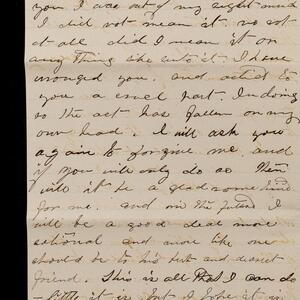 you I was out of my right mind
I did not mean it. no not
at all did I mean it or
any thing like unto it. I have
wronged you, and acted to
you a cruel part. In doing
so the act has fallen on my
own head. I will ask you
again to forgive me. and
if you will only do so then
will it be a gladsome
for me. and in the future I
will be a good deal more
rational and more like one
should be to his best and dearest
friend. This is all that I can do
little it is, but I hope it is